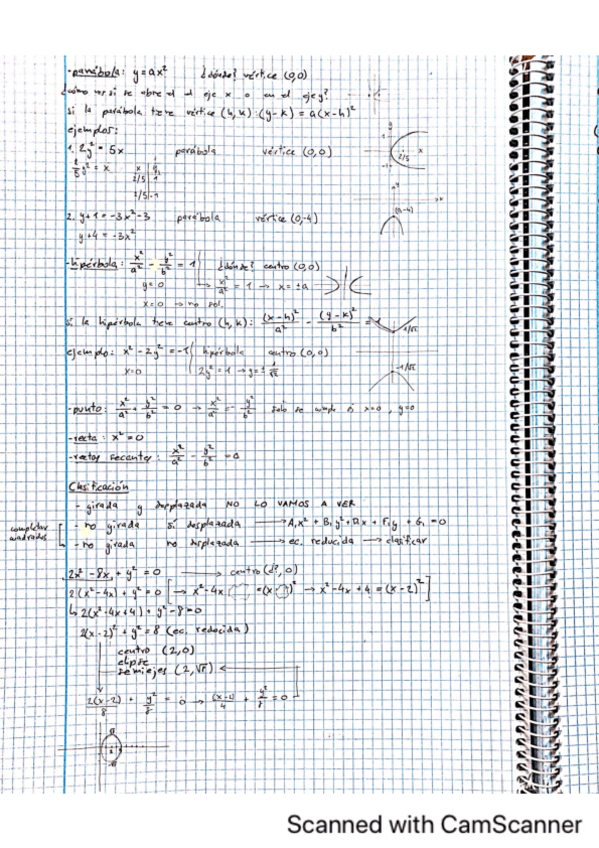 -parábola: y=ax² ¿dónde? vértice (0,0)
¿cómo si se abre el eje x o en el eje y?
Si la parábola tiene vértice (h,k): (y-k) = a(x-h)²
ejemplos:
1. 2y² = 5x parábola vértice (0,0)
2/5 y² = x
2/5 1
2/5 -1
2. y+1 = -3x²-3 parábola vértice (0,-4)
y+4 = -3x²
(0,-4)
-hipérbola: x²/a² - y²/b² = 1 ¿dónde? centro (0,0)
y=0 → x²/a² = 1 → x=±a
x=0 → no sol.
si la hipérbola tiene centro (h,k): (x-h)²/a² - (y-k)²/b² = 1
ejemplo: x² - 2y² = -1 hipérbola centro (0,0)
x=0 2y² = 1 → y=±1/√2
-punto: x²/a² + y²/b² = 0 → x²/a² = - y²/b² solo se cumple si x=0, y=0
-recta: x²=0
-rectas secantes: x²/a² - y²/b² = 0
Clasificación
- girada y desplazada NO LO VAMOS A VER
completar cuadrados
- no girada si desplazada → A₁x² + B₁y² + Dx + F₁y + G₁ = 0
- no girada no desplazada → ec. reducida → clasificar
2x² - 8x + y² = 0 → centro (d?, 0)
2(x²-4x) + y² = 0 [→ x²-4x = (x- )² → x²-4x+4 = (x-2)²]
↳ 2(x²-4x+4) + y² - 8 = 0
2(x-2)² + y² = 8 (ec. reducida)
centro (2,0)
elipse
semiejes (2,√8)
2(x-2)/8 + y²/8 = 0 → (x-2)/4 + y²/8 = 0
Scanned with CamScanner